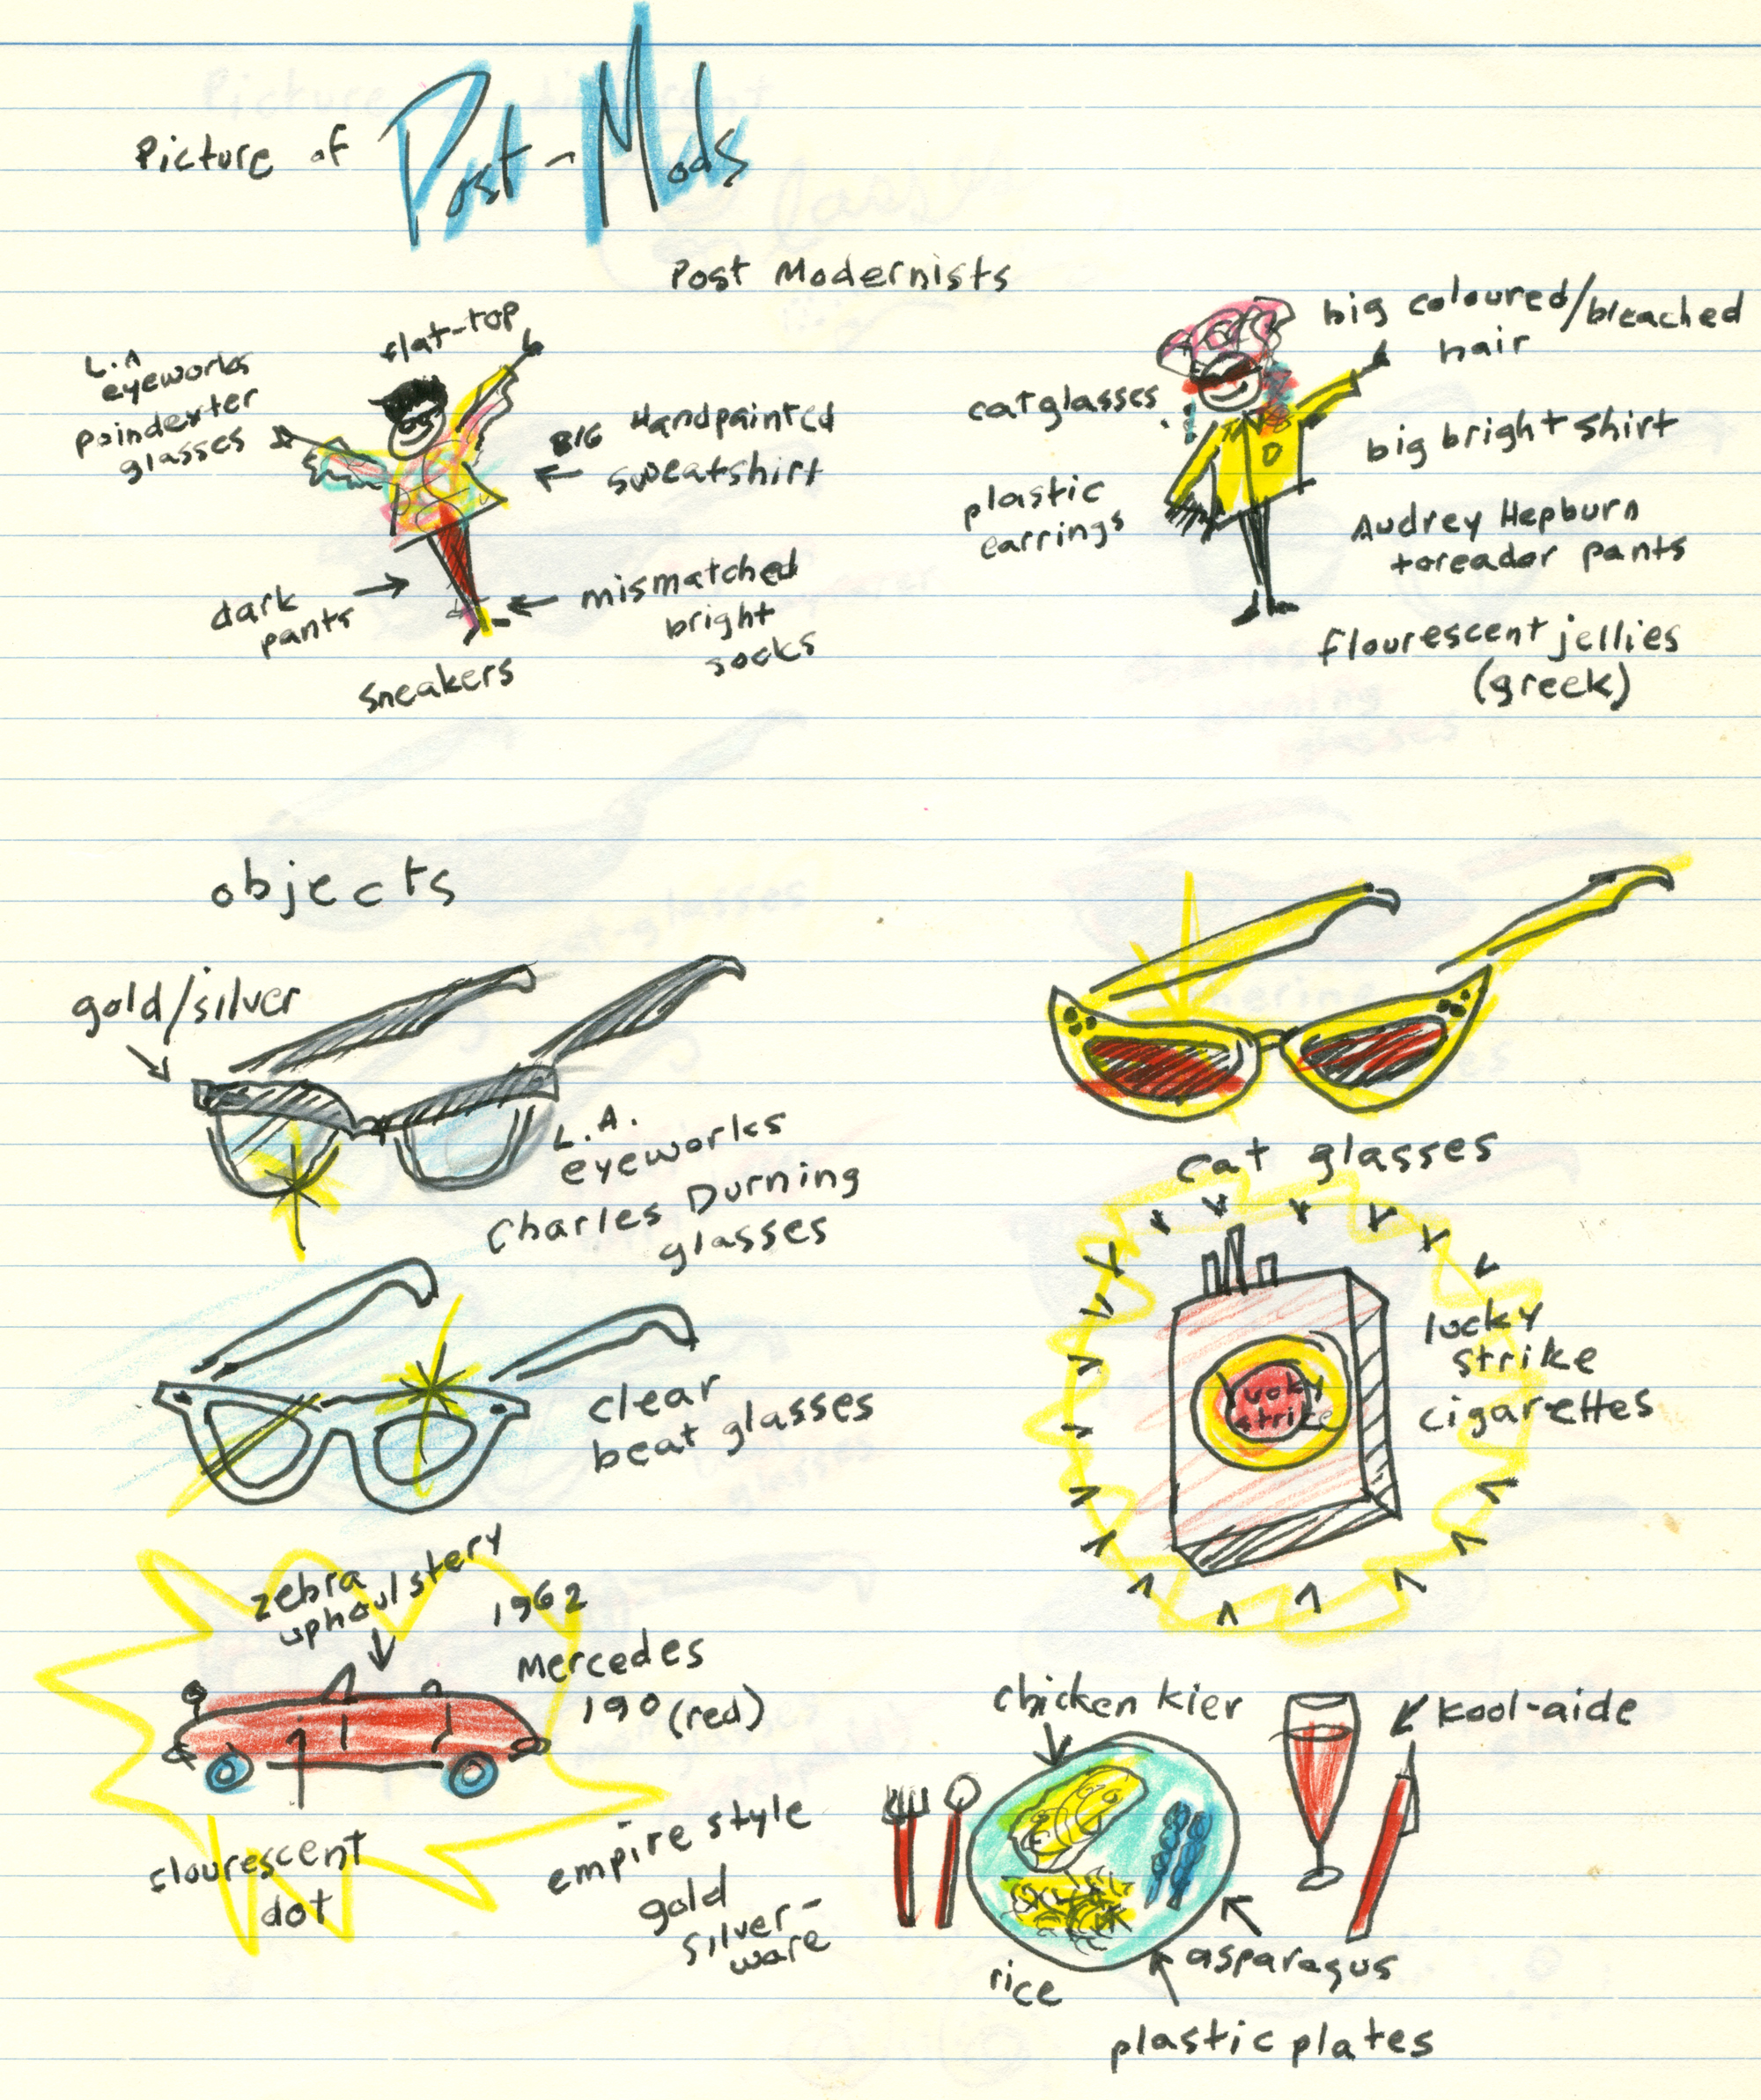 Picture of Post-Mods
Post Modernists
flat-top
L.A
eyeworks
poindexter
glasses
BIG Handpainted
sweatshirt
dark
pants
mismatched
bright
socks
sneakers
big coloured/bleached
hair
catglasses
big bright shirt
plastic
earrings
Audrey Hepburn
toreador pants
flourescent jellies
(greek)
objects
gold/silver
L.A.
eyeworks
Charles Durning
glasses
cat glasses
clear
beat glasses
lucky
strike
cigarettes
lucky
strike
zebra
uphoulstery
1962
Mercedes
190 (red)
flourescent
dot
empire style
gold
silver-
ware
chicken kier
kool-aide
rice
asparagus
plastic plates